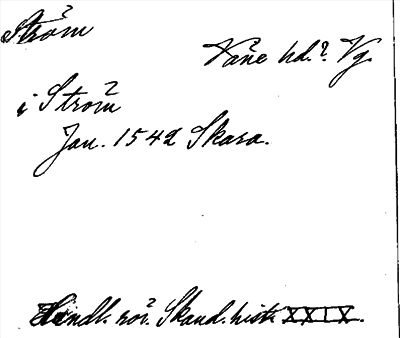 Ström
Väne hd.? Vg.
i Strom
Jan. 1542 Skara.
Handl. rör. Skand. hist. XXIX.